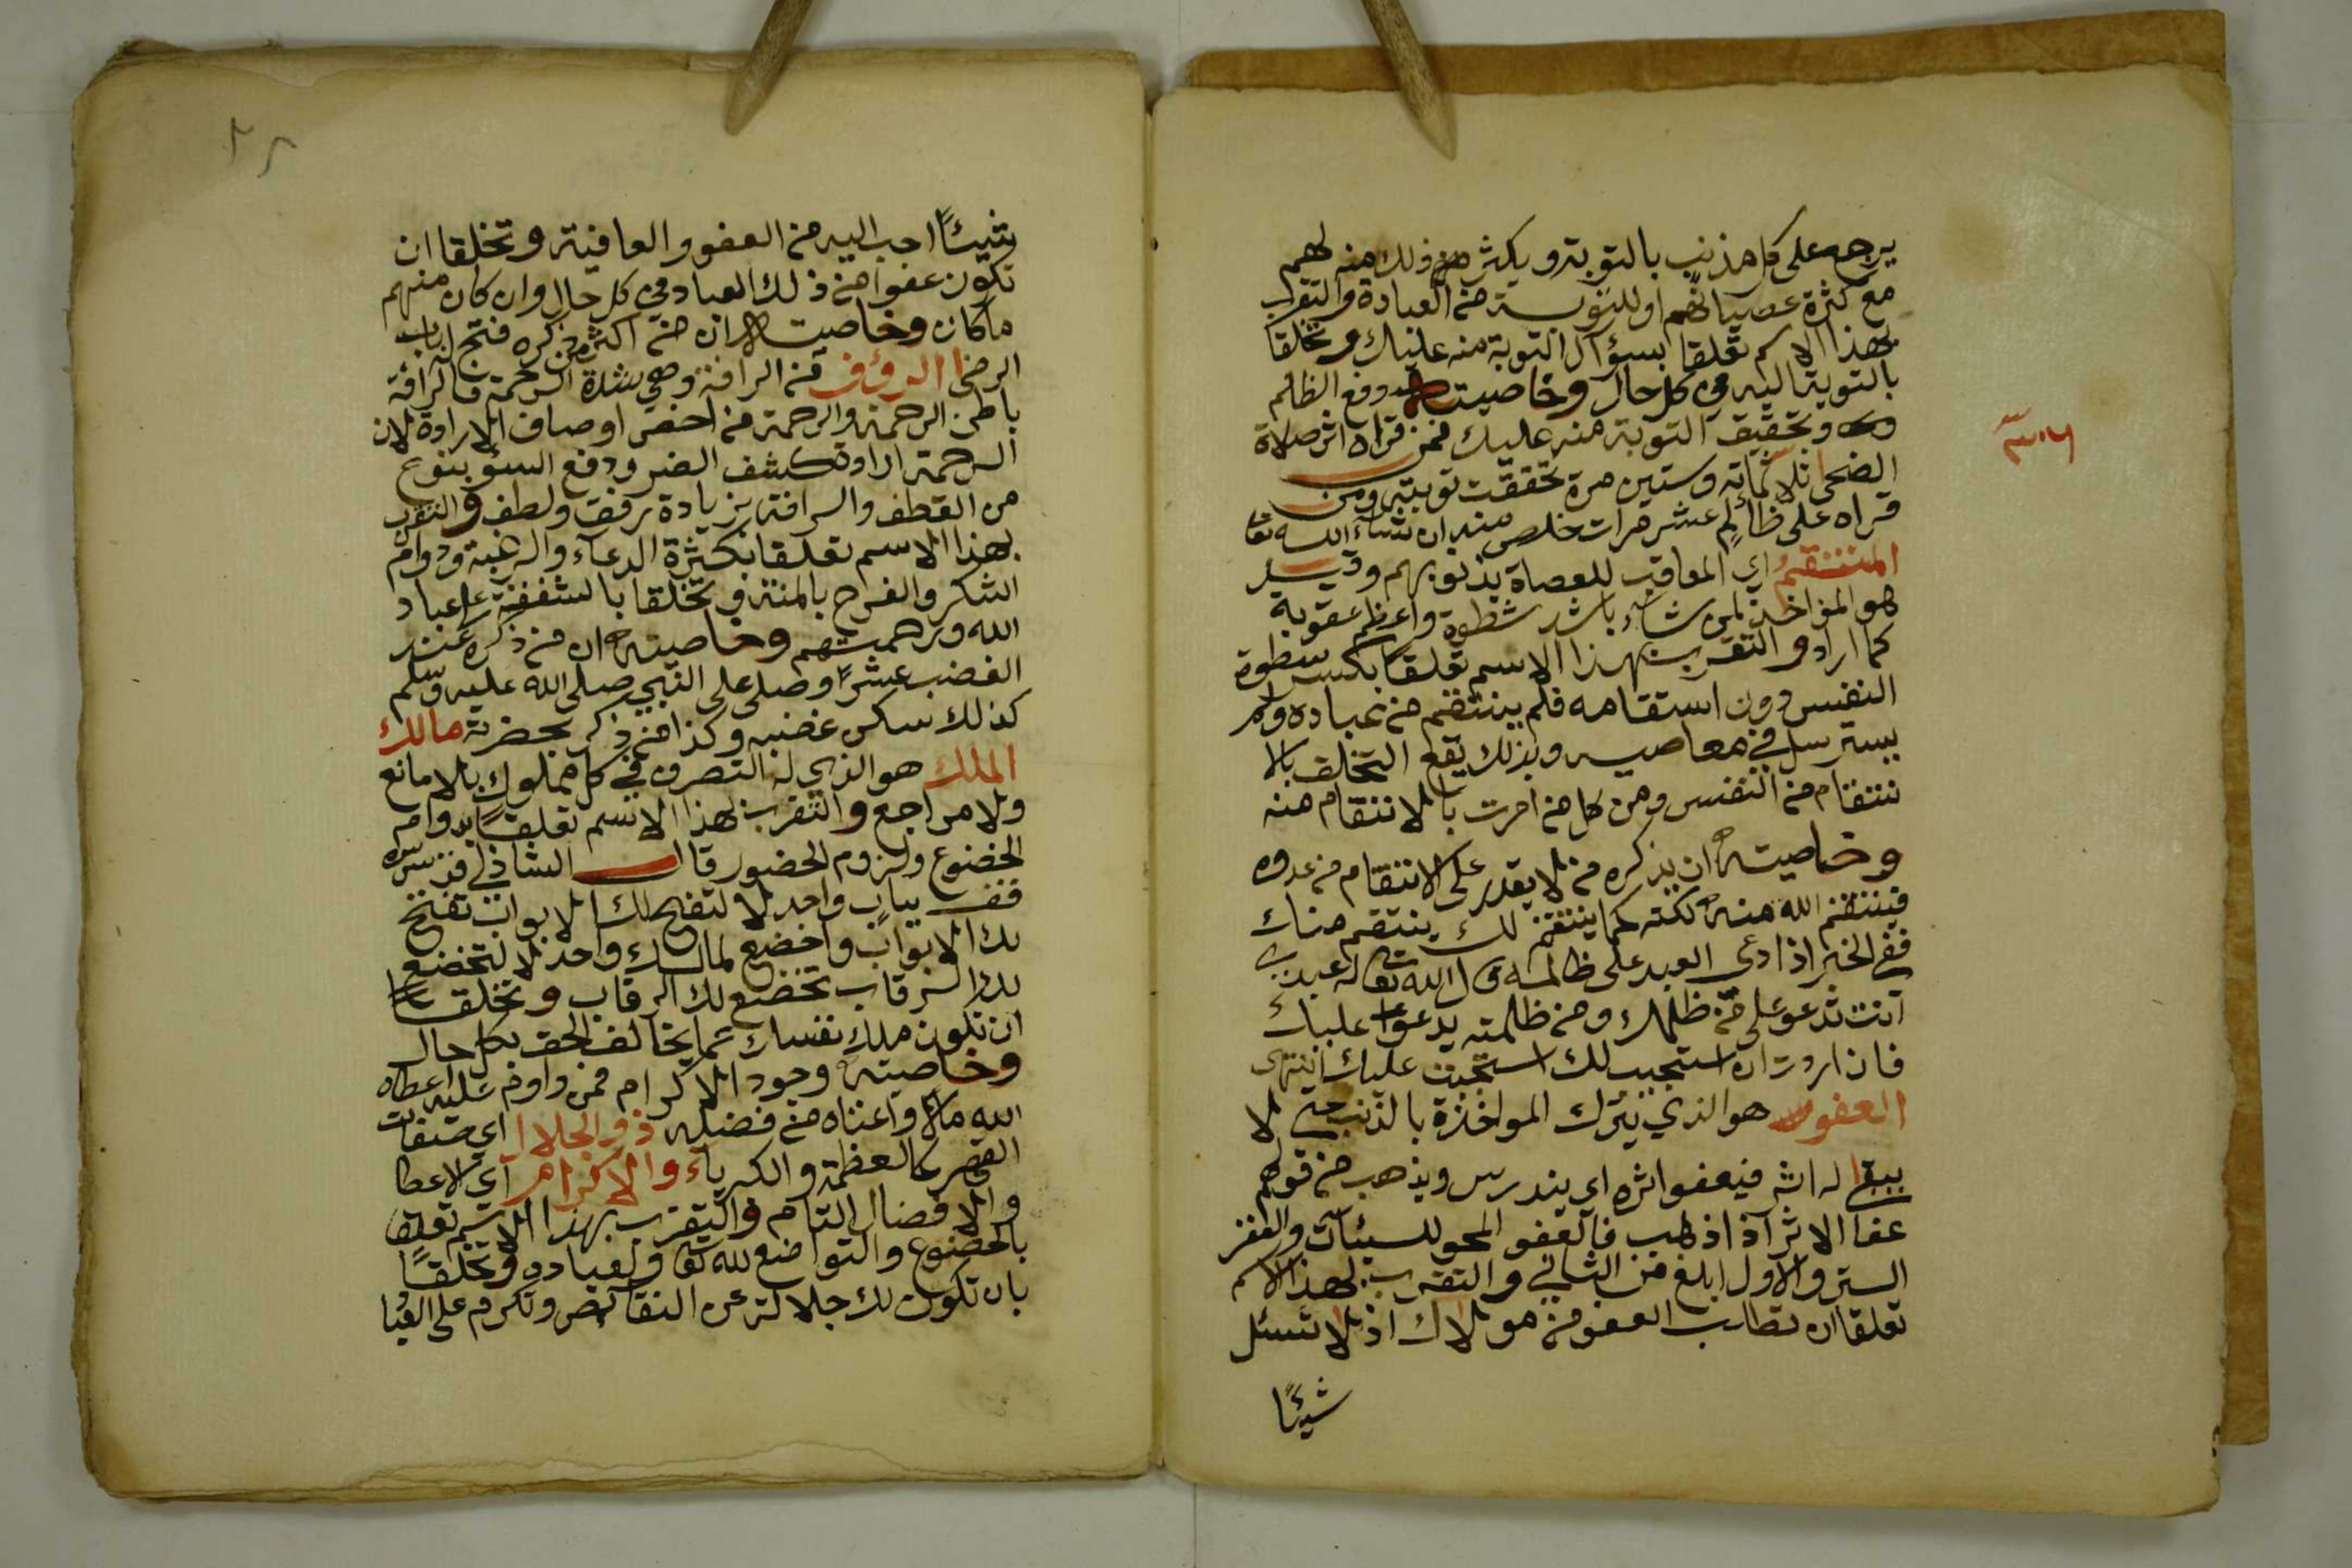 يرجع على كل مذنب بالتوبة ويكثر من ذلك منه لهم
مع كثرة عصيانهم او للتوبة من العبادة والتقرب
بهذا الاسم تعلقا بسؤال التوبة منه عليك وتخلقا
بالتوبة اليه في كل حال وخاصيته دفع الظالم
وتحقيق التوبة منه عليك فمن قراه اثر صلاة
الضحى ثلاثمائة وستين مرة تحققت توبته ومن
قراه على ظالم عشر مرات خلص منه ان شاء الله تعا
المنتقم اي المعاقب للعصاة بذنوبهم وقيل
هو المؤاخذ لمن شاء باشد سطوة واعظم عقوبة
كما اراد والتقرب بهذا الاسم تعلقا بكسر سطوة
النفس دون استقامه فلم ينتقم من عباده ولم
يسترسل في معاصيه وبذلك يقع التخلق بالا
نتقام من النفس ومن كل من امرت بالانتقام منه
وخاصيته ان يذكره من لا يقدر على الانتقام من عدوه
فينتقم الله منه لكنه كما ينتقم لك ينتقم منك
ففي الخبر اذا دعى العبد على ظالمه قال الله تعا له عبدي
انت تدعو على من ظلمك ومن ظلمته يدعو عليك
فان اردت ان استجيب لك استجبت عليك انتهى
العفو هو الذي يترك المواخذة بالذنب حتى لا
يبقا له اثر فيعفو اثره اي يندرس ويذهب من قولهم
عفا الاثر اذا ذهب فالعفو المحو للسيئات والغفر
الستر والاول ابلغ من الثاني والتقرب بهذا الاسم
تعلقا ان تطلب العفو من مولاك اذ لا تسئل
شيئًا
٢٨
شيئًا احب اليه من العفو والعافية وتخلقا ان
تكون عفوا من ذلك العباد في كل حال وان كان منهم
ما كان وخاصيته ان من اكثر من ذكره فتح له باب
الرضى الرؤف من الرافة وهي شدة الرحمة فالرافة
باطن الرحمة والرحمة من اخص اوصاف الارادة لان
الرحمة ارادة كشف الضر ودفع السؤ بنوع
من العطف والرافة بزيادة رفق ولطف والتقرب
بهذا الاسم تعلقا بكثرة الدعاء والرغبة ودوام
الشكر والفرح بالمنة وتخلقا بالشفقة على عباد
الله ورحمتهم وخاصيته ان من ذكره عند
الغضب عشرًا وصلى على النبي صلى الله عليه وسلم
كذلك سكن غضبه وكذا من ذكر بحضرته مالك
الملك هو الذي له التصرف في كل مملوك بلا مانع
ولا مراجع والتقرب بهذا الاسم تعلقًا بدوام
الخضوع ولزوم الحضور قال الشاذلي قدس سره
قف بباب واحد لا لتفتح لك الابواب تفتح
لك الابواب واخضع لمالك واحد لا لتخضع
لك الرقاب تخضع لك الرقاب وتخلقا
ان تكون ملك نفسك عما يخالف الحق بكل حال
وخاصيته وجود الاكرام فمن داوم عليه اعطاه
الله مالا واغناه من فضله ذو الجلال اي صفات
القهر كالعظمة والكبرياء والاكرام اي الاعطا
والافضال التام والتقرب بهذا الاسم تعلقا
بالخضوع والتواضع لله تعا ولعباده وتخلقًا
بان تكون لك جلالة عن النقائص وتكرم على العبا